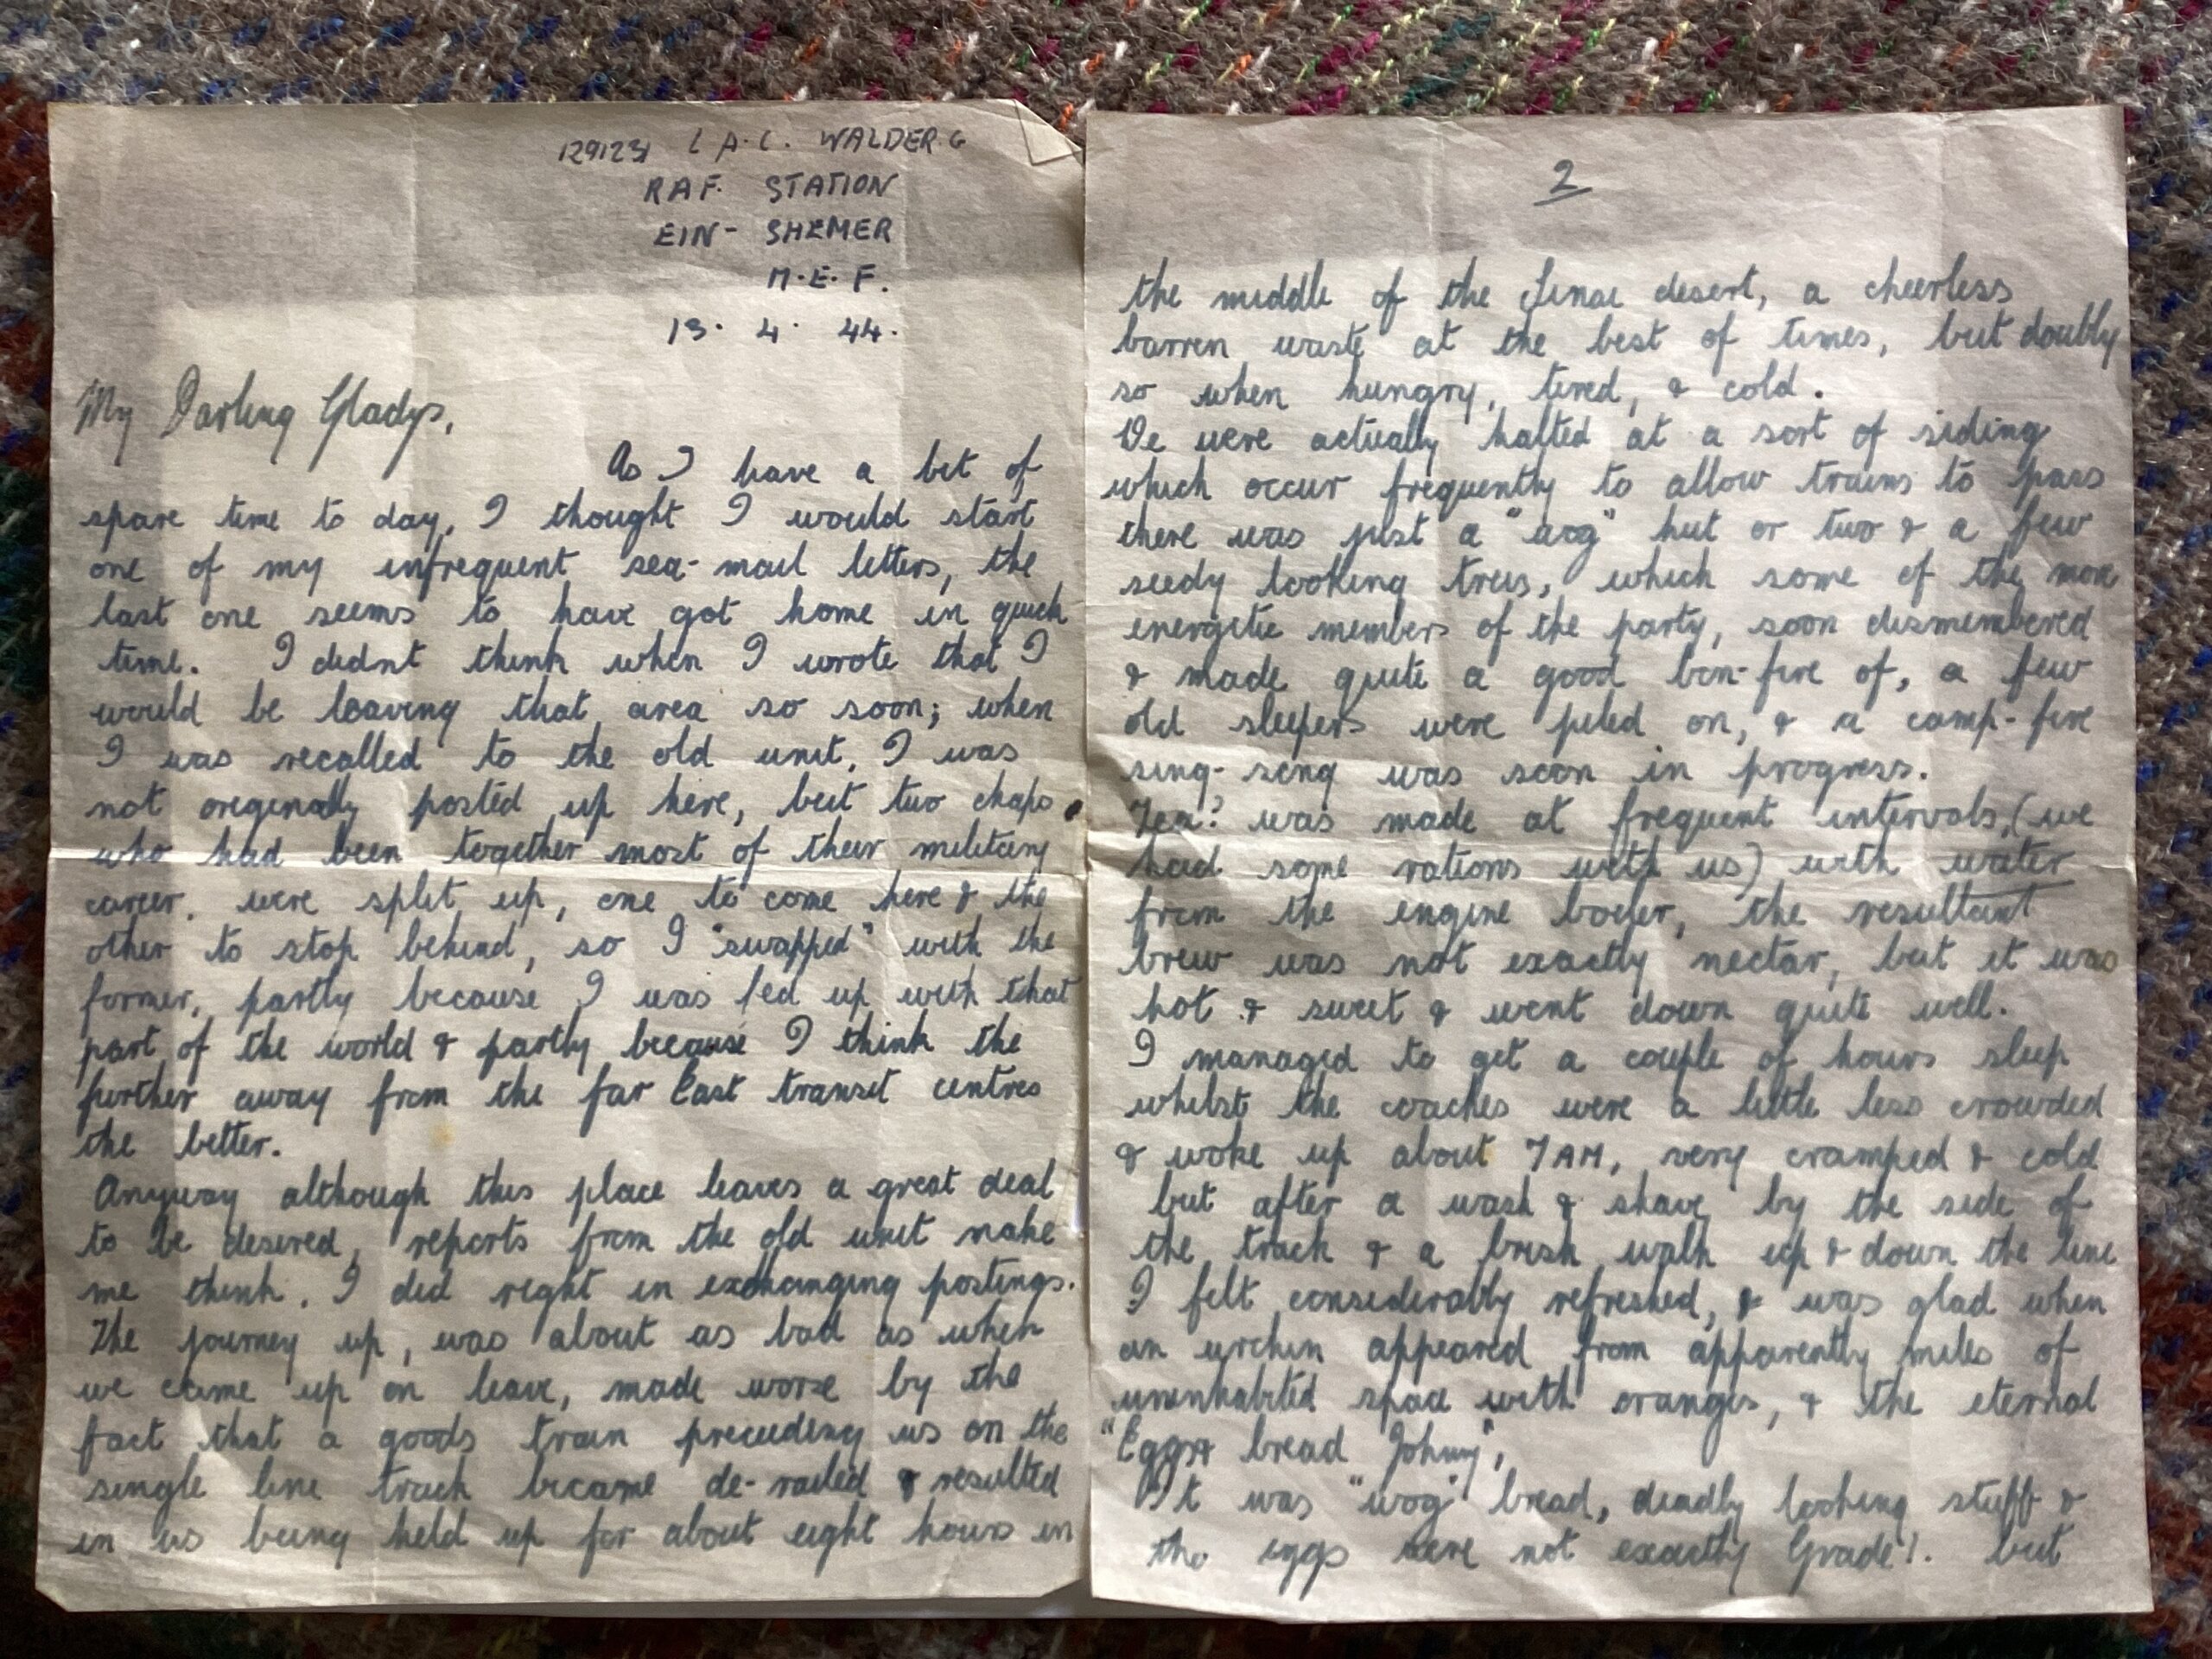 1291231 L.A.C. WALDER. G
RAF. STATION
EIN- SHEMER
M.E.F.
13. 4. 44.
My Darling Gladys,
As I have a bit of
spare time to day, I thought I would start
one of my infrequent sea-mail letters, the
last one seems to have got home in quick
time. I didnt think when I wrote that I
would be leaving that area so soon; when
I was recalled to the old unit, I was
not originally posted up here, but two chaps
who had been together most of their military
career, were split up, one to come here & the
other to stop behind, so I "swapped" with the
former, partly because I was fed up with that
part of the world & partly because I think the
further away from the far East transit centres
the better.
Anyway although this place leaves a great deal
to be desired, reports from the old unit make
me think, I did right in exchanging postings.
The journey up, was about as bad as when
we came up on leave, made worse by the
fact that a goods train preceeding us on the
single line track became de-railed & resulted
in us being held up for about eight hours in
2
the middle of the Sinai desert, a cheerless
barren waste at the best of times, but doubly
so when hungry, tired, & cold.
We were actually halted at a sort of siding
which occur frequently to allow trains to pass
there was just a "wog" hut or two & a few
seedy looking trees, which some of the more
energetic members of the party, soon dismembered
& made quite a good bon-fire of, a few
old sleepers were piled on, & a camp-fire
sing-song was soon in progress.
Tea? was made at frequent intervals, (we
had some rations with us) with water
from the engine boiler, the resultant
brew was not exactly nectar, but it was
hot & sweet & went down quite well.
I managed to get a couple of hours sleep
whilst the coaches were a little less crowded
& woke up about 7AM, very cramped & cold
but after a wash & shave by the side of
the track & a brisk walk up & down the line
I felt considerably refreshed, & was glad when
an urchin appeared from apparently miles of
uninhabited space with oranges, & the eternal
"Eggs & bread Johny",
It was "wog" bread, deadly looking stuff &
the eggs were not exactly Grade 1. but